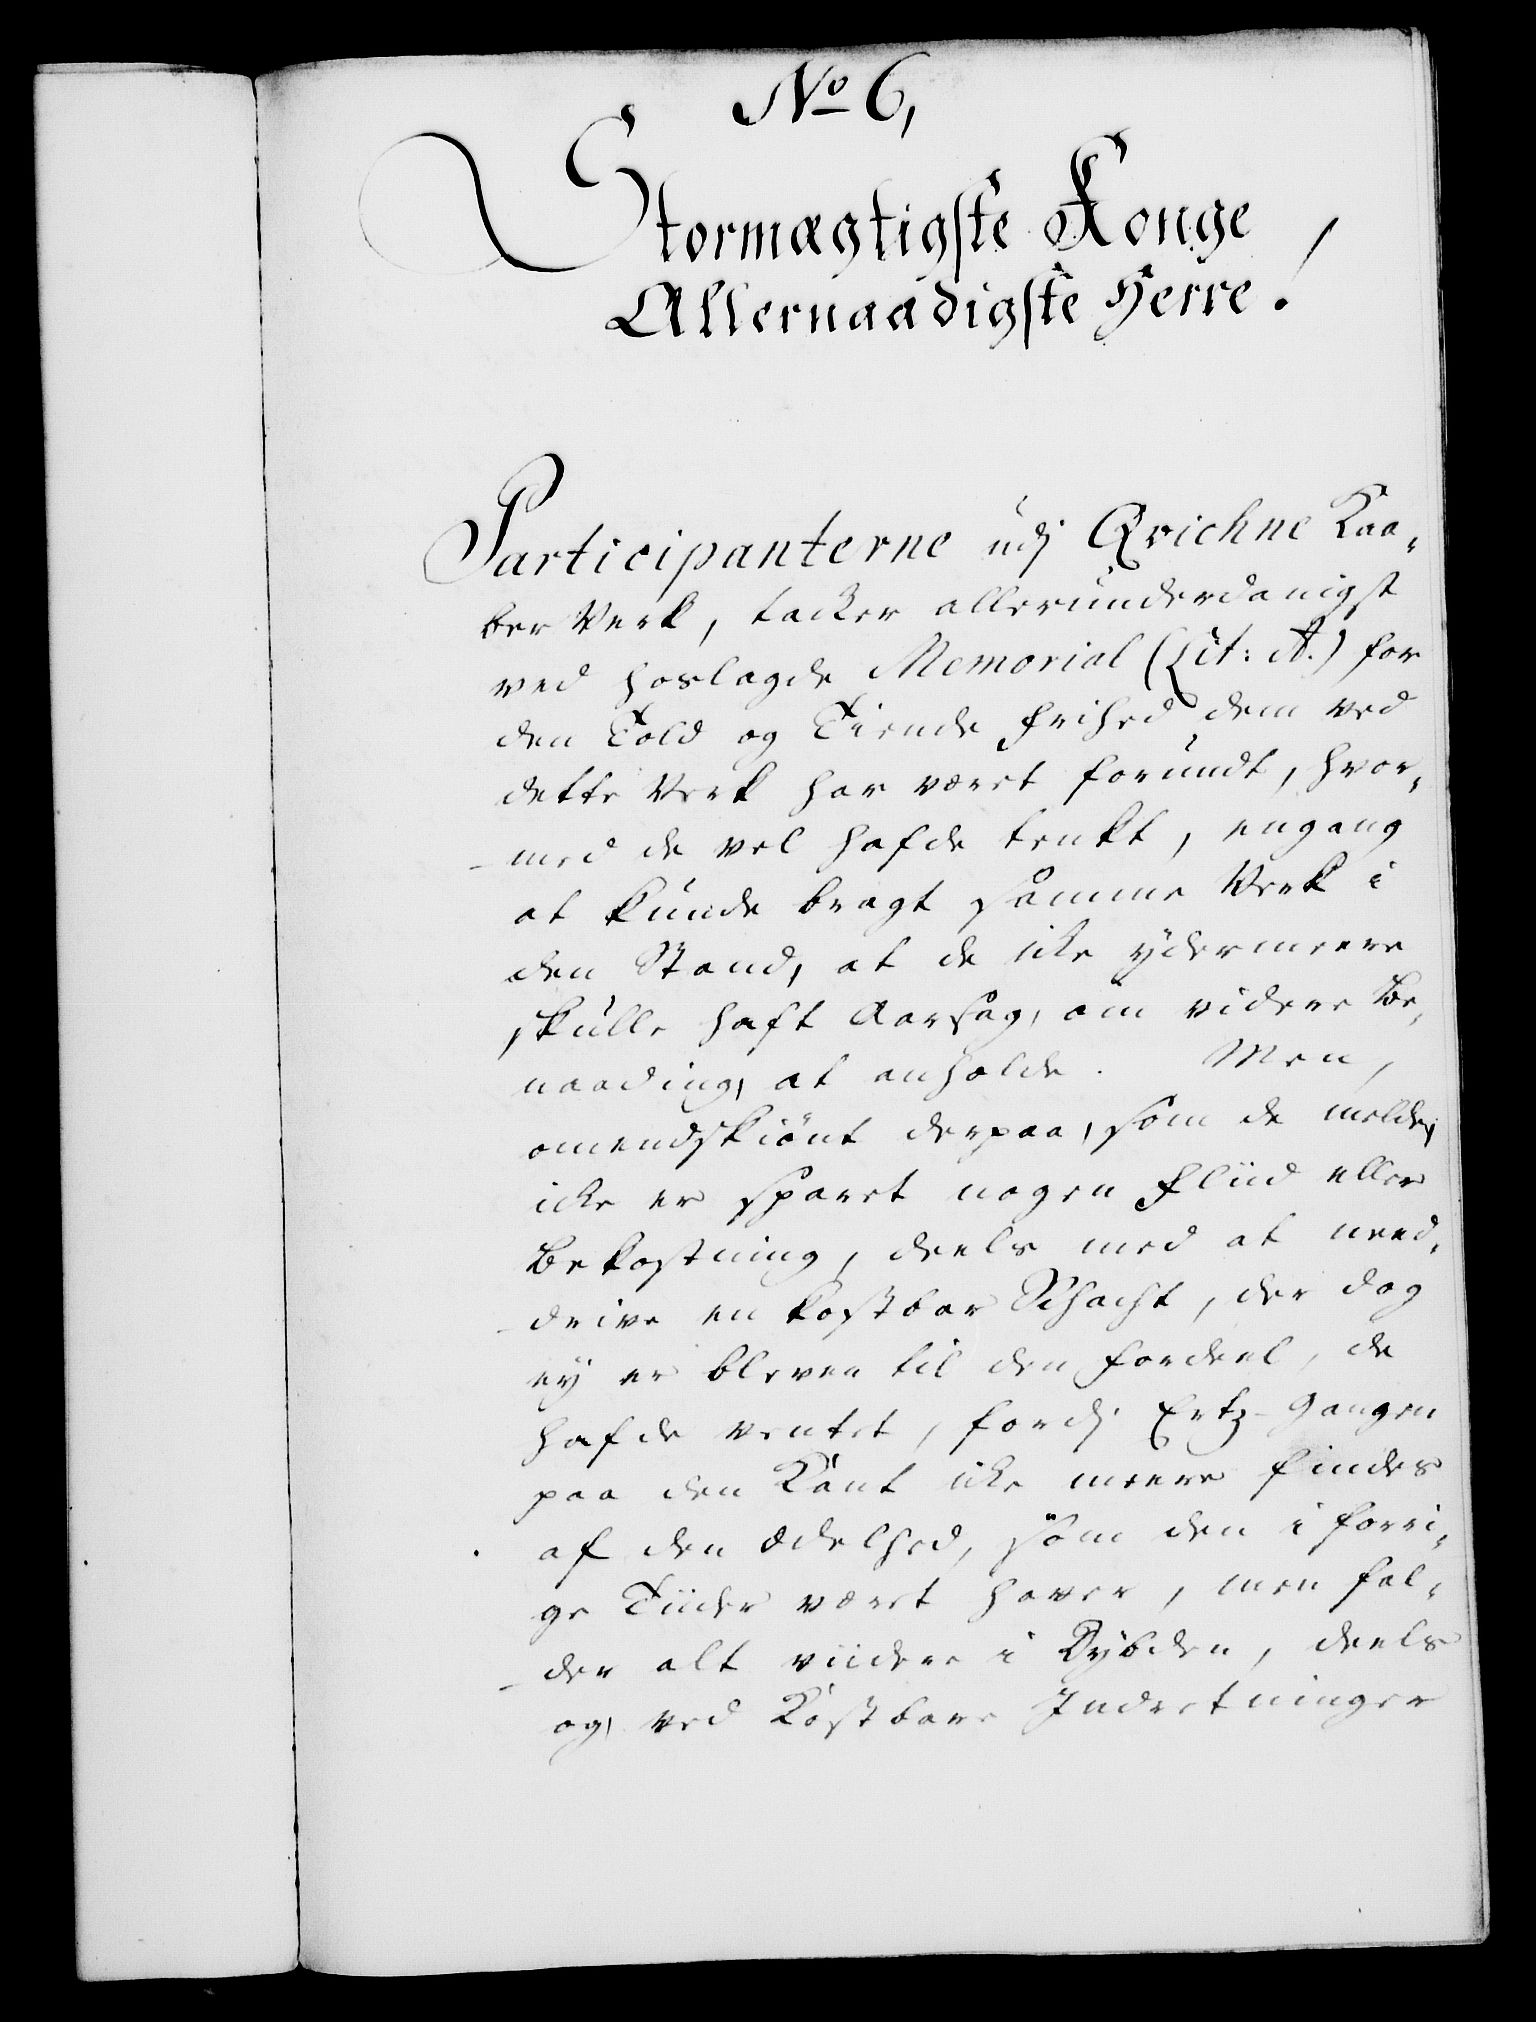 No 6,
Stormægtigste Konge
Allernaadigste Herre!
Participanterne udj Qvichne Kaa-
ber Verk, tacker allerunderdanigst
ved hoslagde Memorial (Lit: A.) for
den Told og Tiende frihed dem ved
dette Verk har været forundt, hvor-
med de vel hafde tenkt, engang
at kunde bragt samme Verk i
den Stand, at de icke ydermeere
skulle haft Aarsag, om videre Be-
naading, at anholde. Men,
omendskiönt derpaa, som de melder,
icke er sparet nogen Fliid eller
Bekostning, deels med at need-
drive en kostbar Schacht, der dog
ey er bleven til den Fordeel, de
hafde ventet, fordj Ertz-Gangen
paa den Kant icke meere findes
af den Ædelhed, som den i forri-
ge Tiider været haver, men fal-
der alt viidere i Dybden, deels
og, ved Kostbare Indretninger